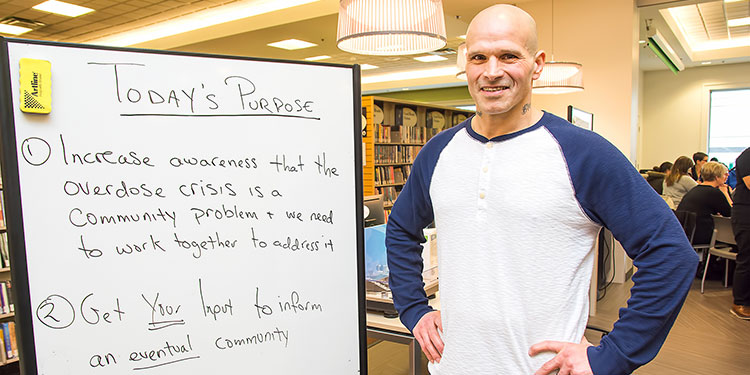 Artline
Today's Purpose
① Increase awareness that the
overdose crisis is a
community problem + we need
to work together to address it
② Get Your Input to inform
an eventual community